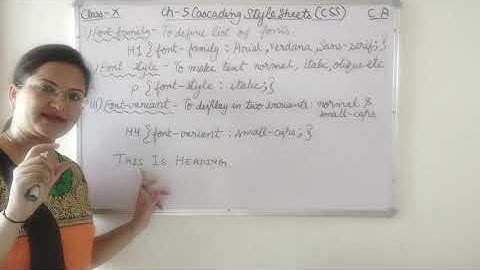 Class-X Ch-5 Cascading Style Sheets (CSS) C A
i) Font-family - To define list of fonts.
H1 {font-family : Arial, Verdana, Sans-serif;}
ii) Font style - To make text normal, italic, oblique etc
P {font-style : italic;}
iii) Font-variant - To display in two invariants: normal &
small-caps
H4 {font-variant : small-caps;}
THIS IS HEADING